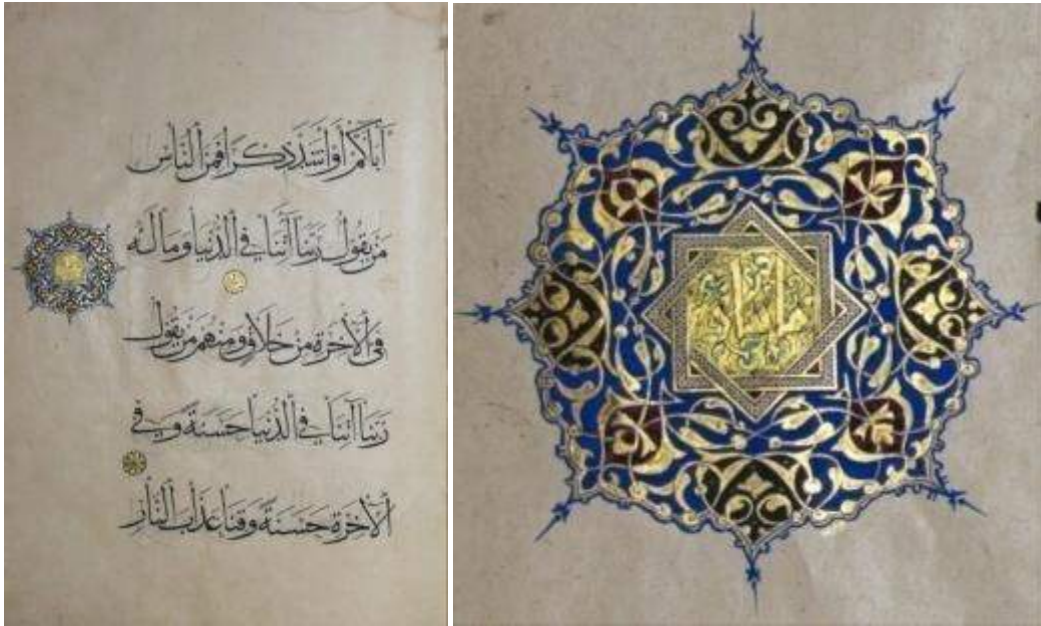 آبَاكُمْ أَوْ أَشَدَّ ذِكْرًا فَمِنَ النَّاسِ
مَنْ يَقُولُ رَبَّنَا آتِنَا فِي الدُّنْيَا وَمَا لَهُ
فِي الْأَخِرَةِ مِنْ خَلَاقٍ وَمِنْهُمْ مَنْ يَقُولُ
رَبَّنَا آتِنَا فِي الدُّنْيَا حَسَنَةً وَفِي
الْأَخِرَةِ حَسَنَةً وَقِنَا عَذَابَ النَّارِ